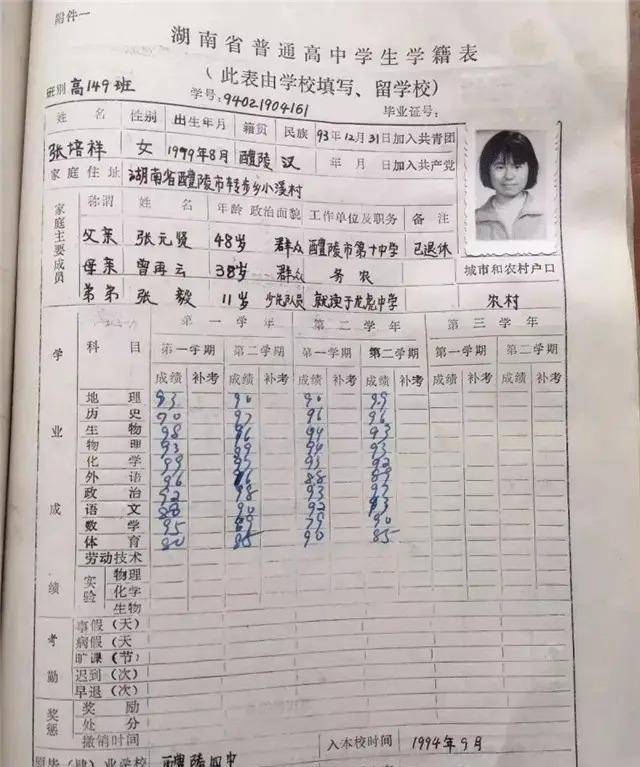 附件一
湖南省普通高中学生学籍表
(此表由学校填写、留学校)
班别 高149班 学号:94021904161 毕业证号:
姓名 性别 出生年月 籍贯 民族 93年12月31日加入共青团
张培祥 女 1979年8月 醴陵 汉 年 月 日加入共产党
家庭住址 湖南省醴陵市转步乡小溪村
家庭主要成员 称谓 姓名 年龄 政治面貌 工作单位及职务 备注
父亲 张元贤 48岁 群众 醴陵市第十中学 已退休
母亲 曾再云 38岁 群众 务农 城市和农村户口
弟弟 张毅 11岁 少先队员 就读于龙虎中学 农村
学业成绩 科目 第一学年 第二学年 第三学年
第一学期 第二学期 第一学期 第二学期 第一学期 第二学期
成绩 补考 成绩 补考 成绩 补考 成绩 补考 成绩 补考 成绩 补考
地理 93 90 90 99
历史 90 97 96 96
生物 98 96 94 93
物理 93 89 94 93
化学 99 97 93 92
外语 96 88
政治 92 98 93 97
语文 88 90 92
数学 95 89 79 90
体育 80 85 90 85
劳动技术
实验 物理
化学
生物
考勤 事假(天)
病假(天
旷课(节)
迟到(次)
早退(次)
奖惩 奖励
处分
撤销时间
入本校时间 1994年9月
原毕(肄)业学校 醴陵四中